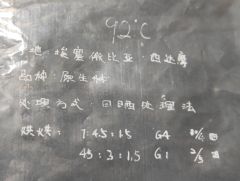 92°C
产地:埃塞俄比亚·西达摩
品种:原生种
处理方式:日晒处理法
烘焙: 7:45:15 G4
45:3:1.5 G1 2/3